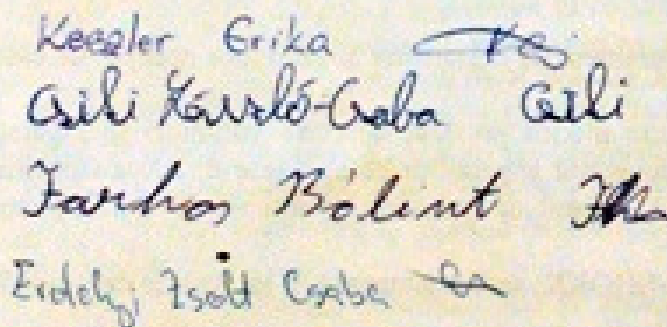 Keezler Erika
Csibi László-Csaba Csibi
Farkas Bálint
Erdelyi Zsolt Csaba